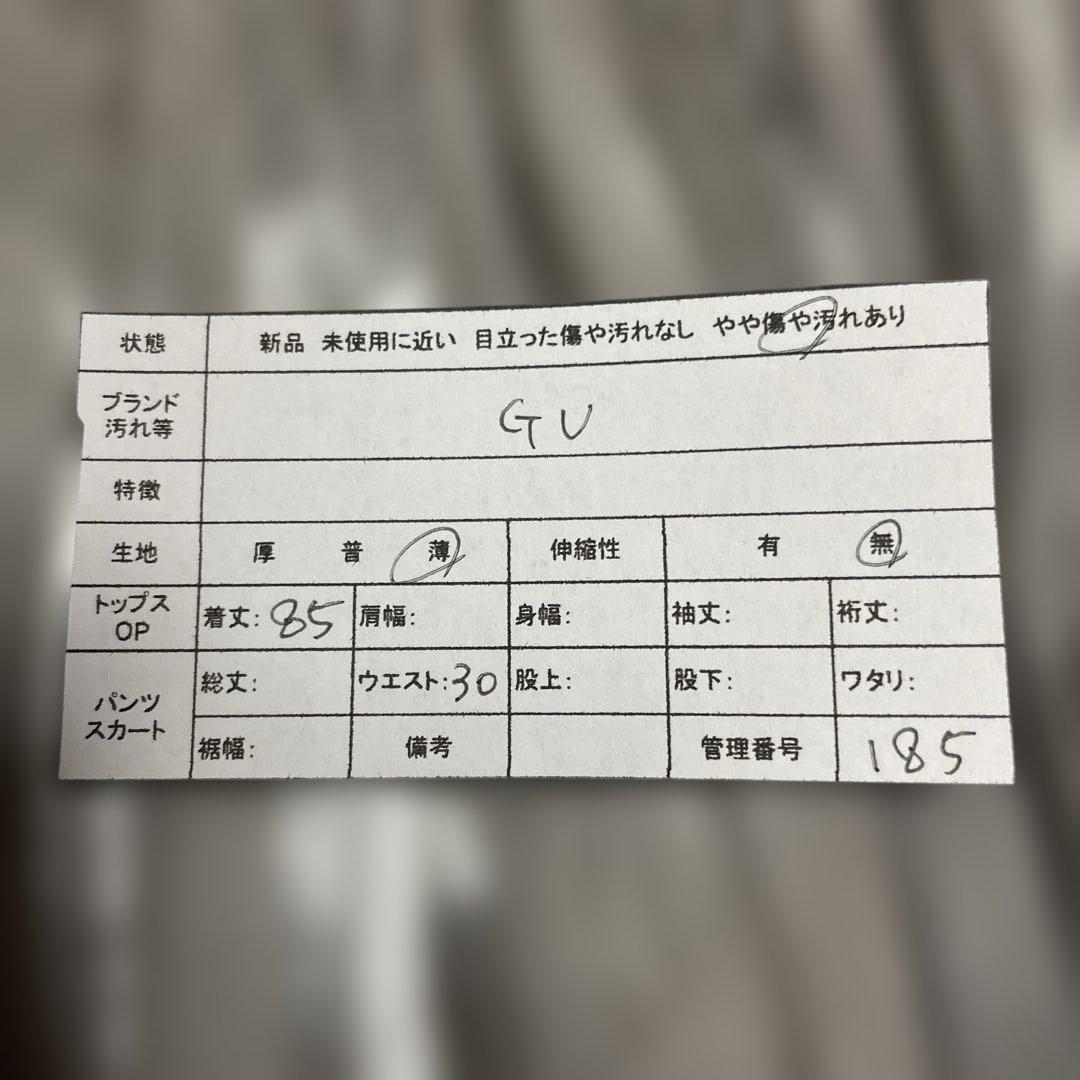 状態 新品 未使用に近い 目立った傷や汚れなし やや傷や汚れあり
ブランド
汚れ等
GU
特徴
生地 厚 普 薄 伸縮性 有 無
トップス
OP
着丈: 85 肩幅: 身幅: 袖丈: 裄丈:
パンツ
スカート
総丈: ウエスト:30 股上: 股下: ワタリ:
裾幅: 備考 管理番号 185